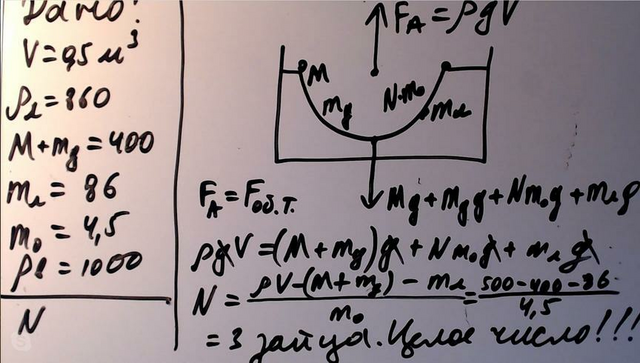 Дано:
V = 0,5 м³
ρл = 860
M + mд = 400
mл = 86
m₀ = 4,5
ρв = 1000
N
F_A = ρgV
M
mд
N·m₀
mл
F_A = F об.т.
Mg + mдg + Nm₀g + mлg
ρgV = (M + mд)g + Nm₀g + mлg
N = (ρV − (M + mд) − mл) / m₀ = (500 − 400 − 86) / 4,5
= 3 зайца. Целое число!!!